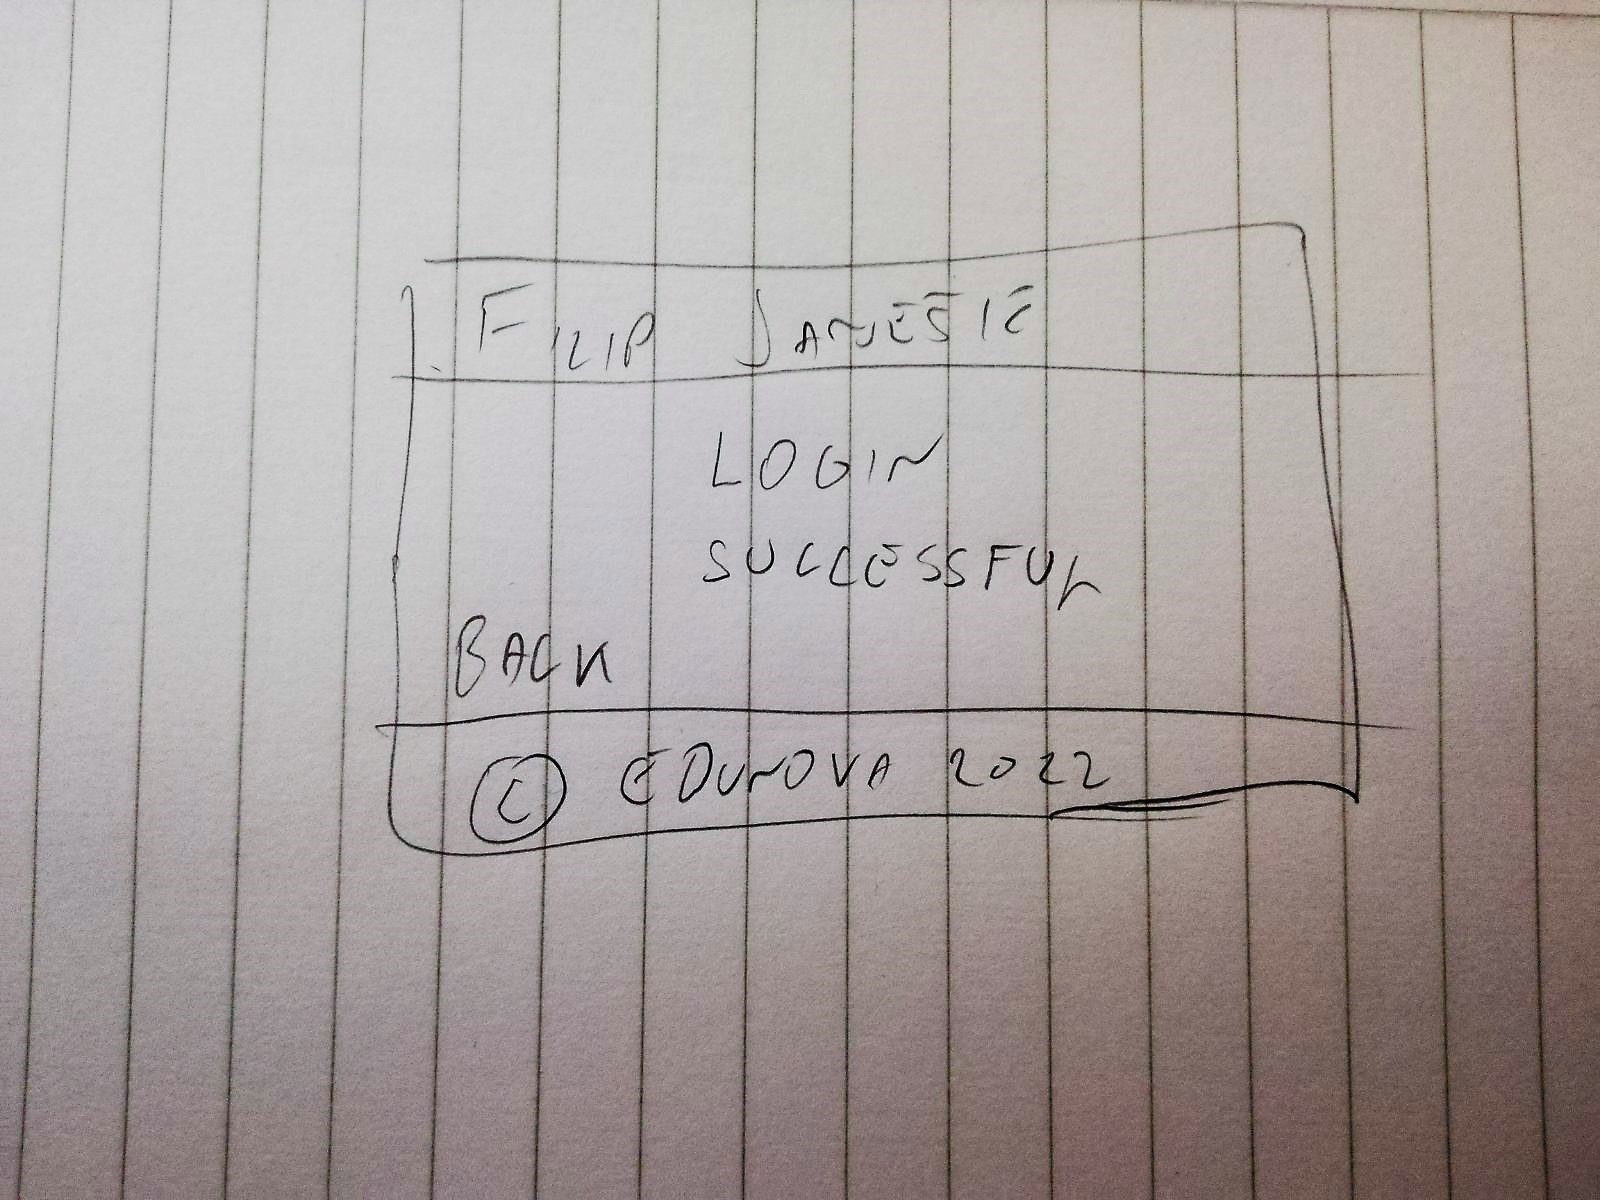 FILIP JANJEŠIĆ
LOGIN
SUCCESSFUL
BACK
© EDUNOVA 2022